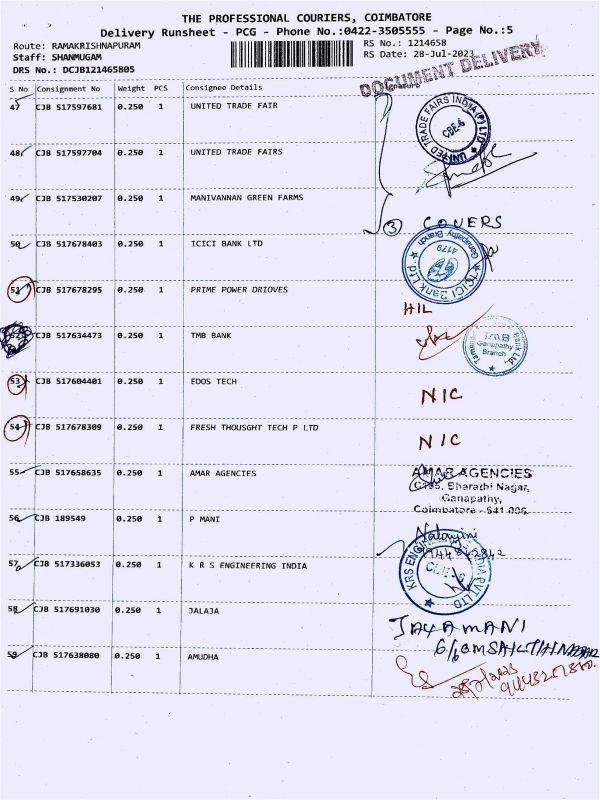 THE PROFESSIONAL COURIERS, COIMBATORE
Delivery Runsheet - PCG - Phone No.:0422-3505555 - Page No.:5
Route: RAMAKRISHNAPURAM
RS No.: 1214658
Staff: SHANMUGAM
RS Date: 28-Jul-2023
DRS No.: DCJB121465805
DOCUMENT DELIVERY
S No Consignment No Weight PCS Consignee Details
47 CJB 517597681 0.250 1 UNITED TRADE FAIR
UNITED TRADE FAIRS INDIA (P) LTD
CBE-6
48 CJB 517597704 0.250 1 UNITED TRADE FAIRS
49 CJB 517530207 0.250 1 MANIVANNAN GREEN FARMS
3 COVERS
50 CJB 517678403 0.250 1 ICICI BANK LTD
ICICI Bank Ltd. Ganapathy Branch
4179
51 CJB 517678295 0.250 1 PRIME POWER DRIOVES
HIL
52 CJB 517634473 0.250 1 TMB BANK
TMB
Ganapathy
Branch
Bank Ltd.
53 CJB 517604401 0.250 1 EDOS TECH
NIC
54 CJB 517678309 0.250 1 FRESH THOUSGHT TECH P LTD
NIC
55 CJB 517658635 0.250 1 AMAR AGENCIES
AMAR AGENCIES
Bharathi Nagar,
Ganapathy,
Coimbatore - 641 006.
56 CJB 189549 0.250 1 P MANI
Nalayini
57 CJB 517336053 0.250 1 K R S ENGINEERING INDIA
KRS ENGINEERING INDIA PVT LTD
58 CJB 517691030 0.250 1 JALAJA
JAYAMANI
59 CJB 517638080 0.250 1 AMUDHA